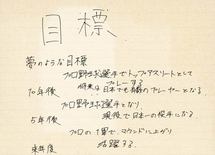 目標
夢のような目標
プロ野球選手でトップアスリートとして
プレーする
10年後
将来は日本でも有数のプレーヤーとなる
プロ野球選手となり
5年後
現役で日本一の投手になる
プロの1軍でマウンドに上がり
来年度
活躍する